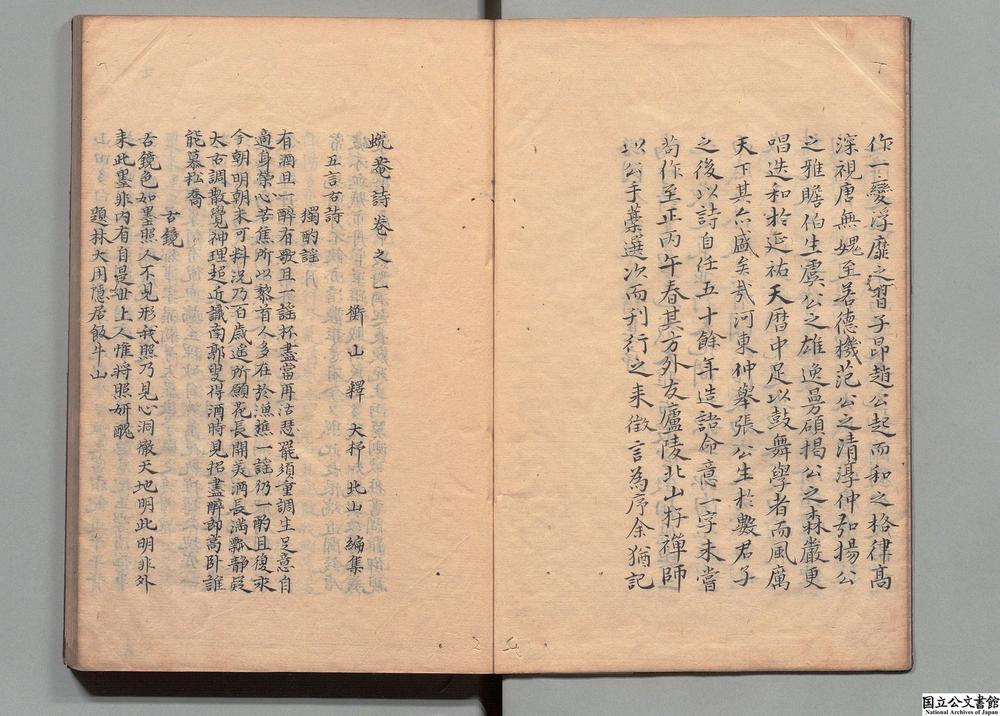 作一變浮靡之習子昂趙公起而和之格律高
深視唐無媿至若德機范公之清淳仲弘揚公
之雅贍伯生虞公之雄逸曼碩揭公之森嚴更
唱迭和於延祐天曆中足以鼓舞學者而風厲
天下其亦盛矣哉河東仲舉張公生於數君子
之後以詩自任五十餘年造語命意一字未嘗
苟作至正丙午春其方外友廬陵北山杼禪師
以公手葉選次而刊行之来徵言為序余猶記
蛻菴詩卷之一
衡山 釋 大杼 北山 編集
五言古詩
獨酌謠
有酒且一醉有歌且一謠杯盡當再沽瑟罷須重調生足意自
適身榮心苦焦所以黎首人多在於漁樵一謠仍一酌且復永
今朝明朝未可料況乃百歲遙所願花長開美酒長滿瓢静疑
大古調散覺神理超近識南郭叟得酒時見招盡醉即高卧誰
能慕松喬
古鏡
古鏡色如墨照人不見形我照乃見心洞徹天地明此明非外
来此墨非内有自是世上人惟将照妍醜
題林大用隱居飯牛山
国立公文書館
National Archives of Japan